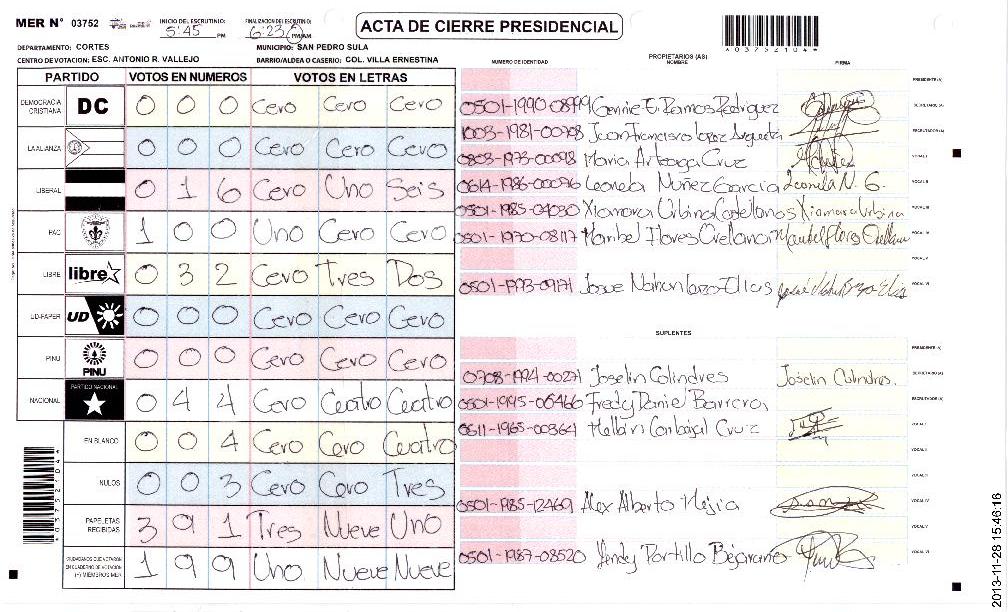 MER N° 03752 INICIO DEL ESCRUTINIO: 5:45 PM FINALIZACION DEL ESCRUTINIO: 6:23 PM/AM ACTA DE CIERRE PRESIDENCIAL
*03752104*
DEPARTAMENTO: CORTES MUNICIPIO: SAN PEDRO SULA
CENTRO DE VOTACION: ESC. ANTONIO R. VALLEJO BARRIO/ALDEA O CASERIO: COL. VILLA ERNESTINA
PARTIDO VOTOS EN NUMEROS VOTOS EN LETRAS
DEMOCRACIA CRISTIANA DC 0 0 0 Cero Cero Cero
LA ALIANZA 0 0 0 Cero Cero Cero
LIBERAL 0 1 6 Cero Uno Seis
PAC 1 0 0 Uno Cero Cero
LIBRE libre 0 3 2 Cero Tres Dos
UD-FAPER UD 0 0 0 Cero Cero Cero
PINU PINU 0 0 0 Cero Cero Cero
NACIONAL PARTIDO NACIONAL 0 4 4 Cero Cuatro Cuatro
EN BLANCO 0 0 4 Cero Cero Cuatro
NULOS 0 0 3 Cero Cero Tres
PAPELETAS RECIBIDAS 3 9 1 Tres Nueve Uno
CIUDADANOS QUE VOTARON EN CUADERNO DE VOTACION (+) MIEMBROS MER 1 9 9 Uno Nueve Nueve
*03752104*
NUMERO DE IDENTIDAD PROPIETARIOS (AS) NOMBRE FIRMA
PRESIDENTE (A)
0501-1990-08999 Gennie E. Ramos Rodriguez SECRETARIO (A)
1003-1981-00708 Juan Francisco Lopez ESCRUTADOR (A)
0803-1973-00098 Maria Arteaga Cruz VOCAL I
0614-1986-00096 Leonela Nuñez Garcia Leonela N. G. VOCAL II
0501-1985-04030 Xiomara Urbina Castellanos Xiomara Urbina VOCAL III
0501-1970-08117 Maribel Flores Orellana Maribel Flores Orellana VOCAL IV
VOCAL V
0501-1993-09171 Josue Nahun Lazo Elias VOCAL VI
SUPLENTES
PRESIDENTE (A)
0708-1994-00271 Joselin Colindres Joselin Colindres. SECRETARIO (A)
0501-1995-06466 Fredy Daniel Barrera ESCRUTADOR (A)
0611-1965-00364 Mellan Carbajal Cruz VOCAL I
VOCAL II
VOCAL III
0501-1985-12469 Alex Alberto Mejia VOCAL IV
VOCAL V
0501-1987-08520 Yendy Portillo Bejarano VOCAL VI
2013-11-28 15:46:16